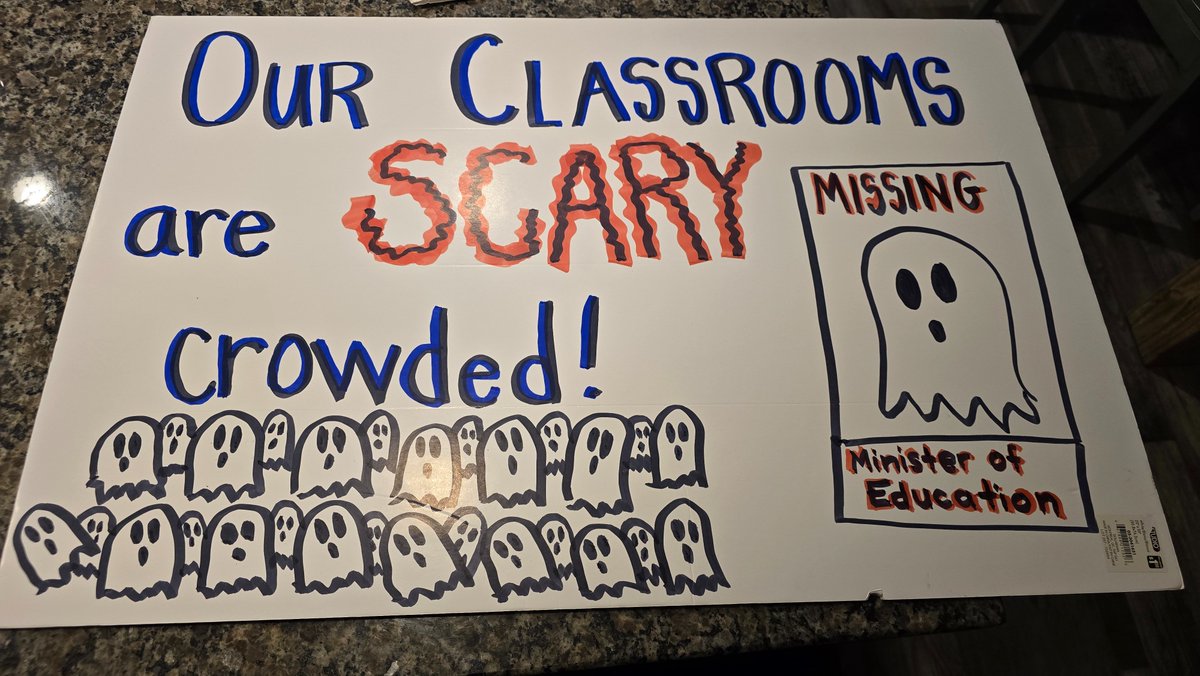 OUR CLASSROOMS
are SCARY
crowded!
MISSING
Minister of
Education